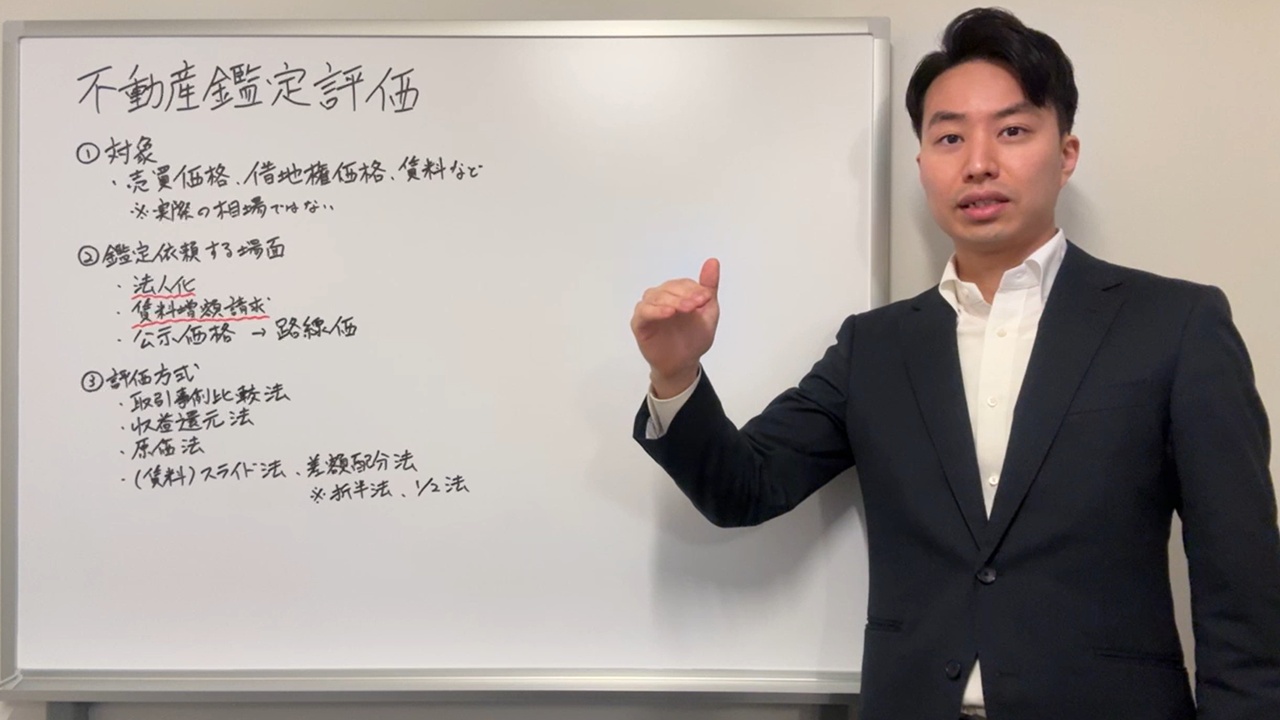 不動産鑑定評価
① 対象
・売買価格、借地権価格、賃料など
※実際の相場ではない
② 鑑定依頼する場面
・法人化
・賃料増額請求
・公示価格 → 路線価
③ 評価方式
・取引事例比較法
・収益還元法
・原価法
・(賃料)スライド法、差額配分法
※折半法、1/2法